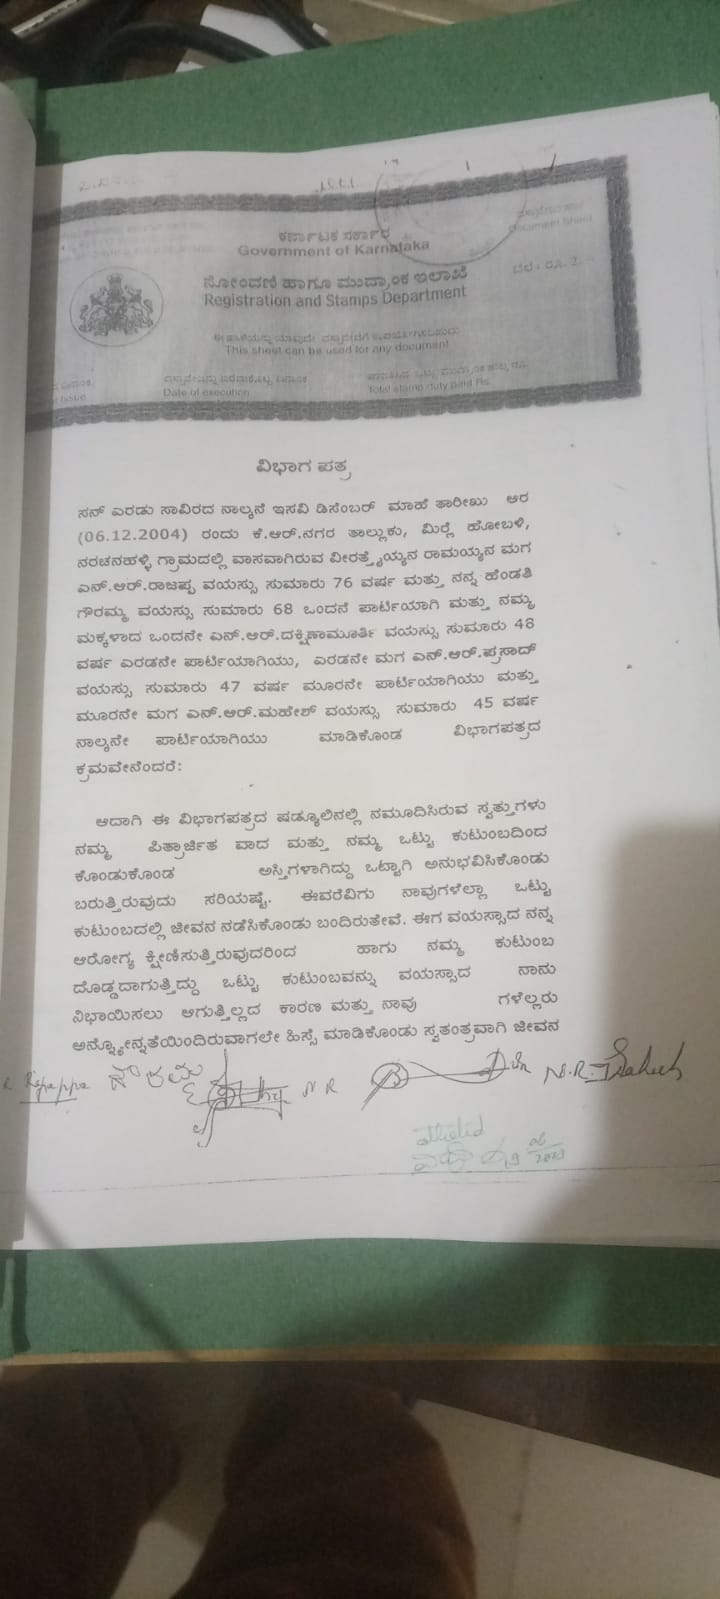 ಕರ್ನಾಟಕ ಸರ್ಕಾರ
Government of Karnataka
Document Sheet
ನೋಂದಣಿ ಹಾಗೂ ಮುದ್ರಾಂಕ ಇಲಾಖೆ
ಬೆಲೆ : ರೂ. 2
Registration and Stamps Department
This sheet can be used for any document
Date of execution
Total stamp duty paid Rs.
ವಿಭಾಗ ಪತ್ರ
ಸನ್ ಎರಡು ಸಾವಿರದ ನಾಲ್ಕನೆ ಇಸವಿ ಡಿಸೆಂಬರ್ ಮಾಹೆ ತಾರೀಖು ಆರ
(06.12.2004) ರಂದು ಕೆ.ಆರ್.ನಗರ ತಾಲ್ಲುಕು, ಮಿರ್‍ಲೆ ಹೋಬಳಿ,
ನರಚನಹಳ್ಳಿ ಗ್ರಾಮದಲ್ಲಿ ವಾಸವಾಗಿರುವ ರಾಮಯ್ಯನ ಮಗ
ಎನ್.ಆರ್.ರಾಜಪ್ಪ ವಯಸ್ಸು ಸುಮಾರು 76 ವರ್ಷ ಮತ್ತು ನನ್ನ ಹೆಂಡತಿ
ಗೌರಮ್ಮ ವಯಸ್ಸು ಸುಮಾರು 68 ಒಂದನೆ ಪಾರ್ಟಿಯಾಗಿ ಮತ್ತು ನಮ್ಮ
ಮಕ್ಕಳಾದ ಒಂದನೇ ಎನ್.ಆರ್.ದಕ್ಷಿಣಾಮೂರ್ತಿ ವಯಸ್ಸು ಸುಮಾರು 48
ವರ್ಷ ಎರಡನೇ ಪಾರ್ಟಿಯಾಗಿಯು, ಎರಡನೇ ಮಗ ಎನ್.ಆರ್.ಪ್ರಸಾದ್
ವಯಸ್ಸು ಸುಮಾರು 47 ವರ್ಷ ಮೂರನೇ ಪಾರ್ಟಿಯಾಗಿಯು ಮತ್ತು
ಮೂರನೇ ಮಗ ಎನ್.ಆರ್.ಮಹೇಶ್ ವಯಸ್ಸು ಸುಮಾರು 45 ವರ್ಷ
ನಾಲ್ಕನೇ ಪಾರ್ಟಿಯಾಗಿಯು ಮಾಡಿಕೊಂಡ ವಿಭಾಗಪತ್ರದ
ಕ್ರಮವೇನೆಂದರೆ:
ಆದಾಗಿ ಈ ವಿಭಾಗಪತ್ರದ ಷಡ್ಯೂಲಿನಲ್ಲಿ ನಮೂದಿಸಿರುವ ಸ್ವತ್ತುಗಳು
ನಮ್ಮ ಪಿತ್ರಾರ್ಜಿತ ವಾದ ಮತ್ತು ನಮ್ಮ ಒಟ್ಟು ಕುಟುಂಬದಿಂದ
ಕೊಂಡುಕೊಂಡ ಅಸ್ತಿಗಳಾಗಿದ್ದು ಒಟ್ಟಾಗಿ ಅನುಭವಿಸಿಕೊಂಡು
ಬರುತ್ತಿರುವುದು ಸರಿಯಷ್ಟೆ. ಈವರೆವಿಗು ನಾವುಗಳೆಲ್ಲಾ ಒಟ್ಟು
ಕುಟುಂಬದಲ್ಲಿ ಜೀವನ ನಡೆಸಿಕೊಂಡು ಬಂದಿರುತೇವೆ. ಈಗ ವಯಸ್ಸಾದ ನನ್ನ
ಆರೋಗ್ಯ ಕ್ಷೀಣಿಸುತ್ತಿರುವುದರಿಂದ ಹಾಗು ನಮ್ಮ ಕುಟುಂಬ
ದೊಡ್ಡದಾಗುತ್ತಿದ್ದು ಒಟ್ಟು ಕುಟುಂಬವನ್ನು ವಯಸ್ಸಾದ ನಾನು
ನಿಭಾಯಿಸಲು ಆಗುತ್ತಿಲ್ಲದ ಕಾರಣ ಮತ್ತು ನಾವು ಗಳೆಲ್ಲರು
ಅನ್ನ್ಯೋನ್ನತೆಯಿಂದಿರುವಾಗಲೇ ಹಿಸ್ಸೆ ಮಾಡಿಕೊಂಡು ಸ್ವತಂತ್ರವಾಗಿ ಜೀವನ
ಗೌರಮ್ಮ N R